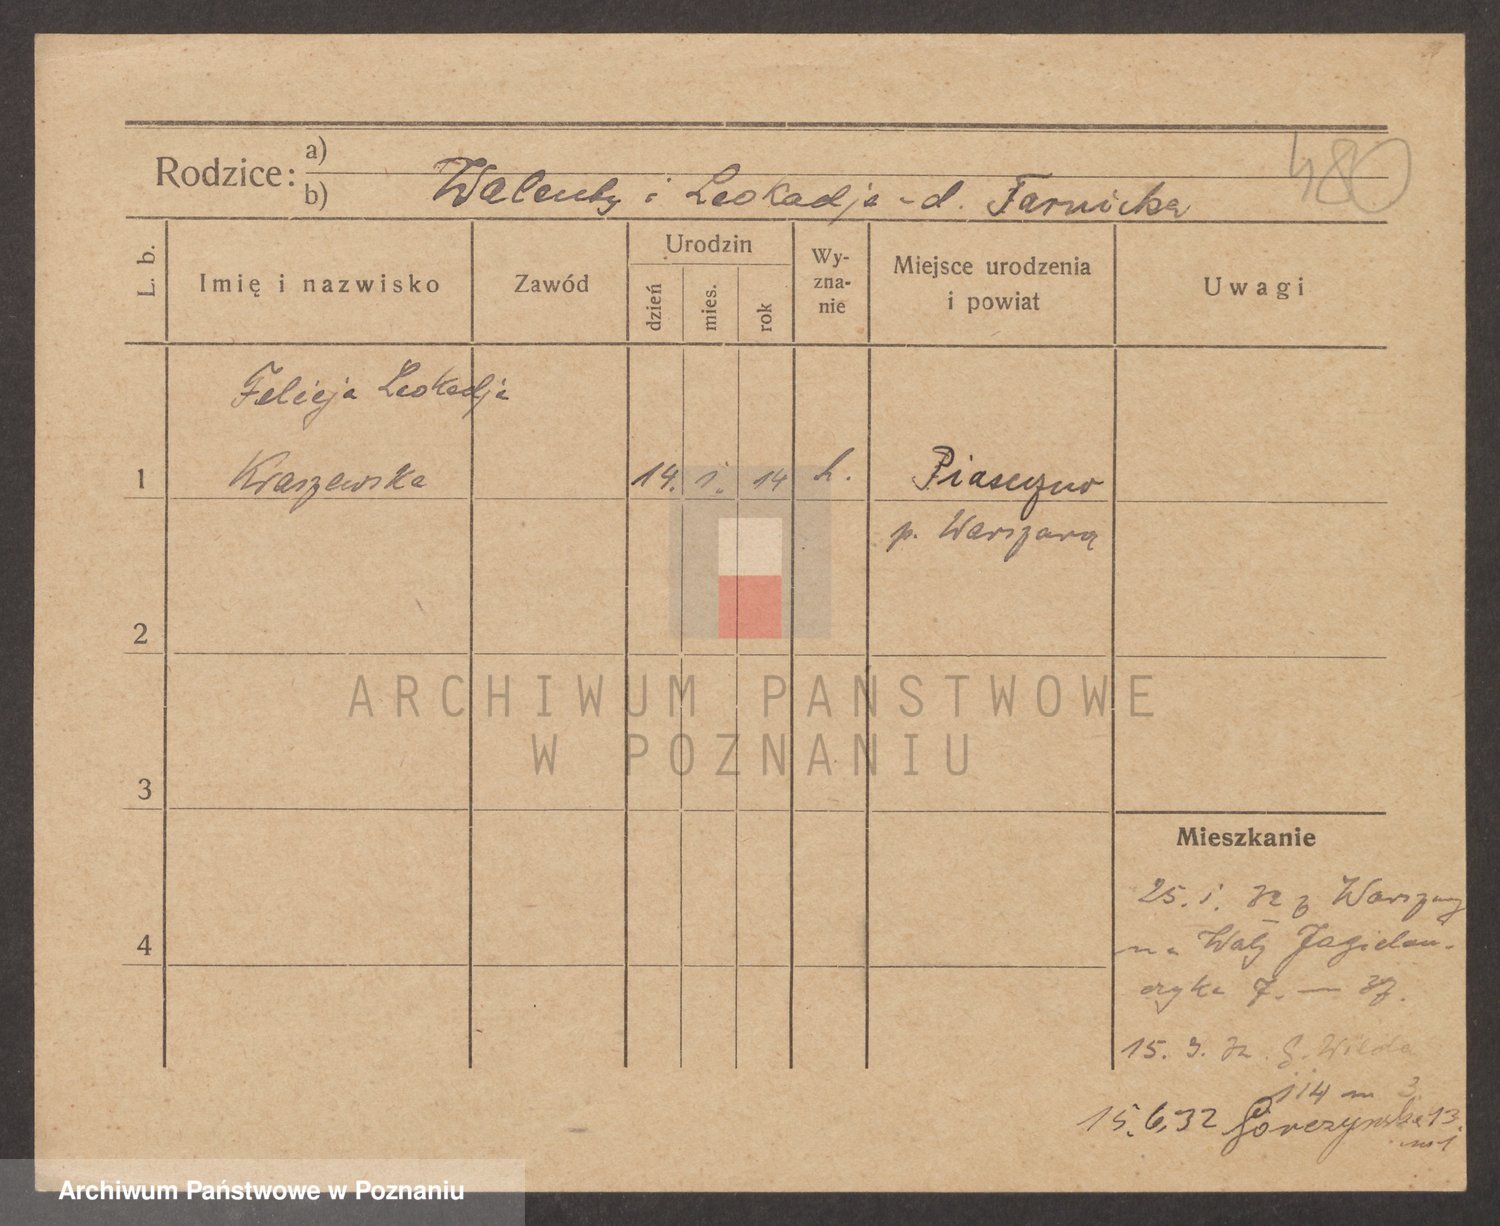 480
Rodzice:
a)
b)
Walenty i Leokadja - d. Tarnicka
L. b.
Imię i nazwisko
Zawód
Urodzin
dzień
mies.
rok
Wy-
zna-
nie
Miejsce urodzenia
i powiat
Uwagi
Felicja Leokadja
1
Kraszewska
14. 1. 14
k.
Piaseczno
p. Warszawa
2
3
4
Mieszkanie
25. 1. 32 z Warszawy
na Wały Jagieloń-
czyka 7. —
15. 3. 32. G. Wilda
114 m 3
15.6.32 Górczyńska 13.
m 1
ARCHIWUM PAŃSTWOWE
W POZNANIU
Archiwum Państwowe w Poznaniu